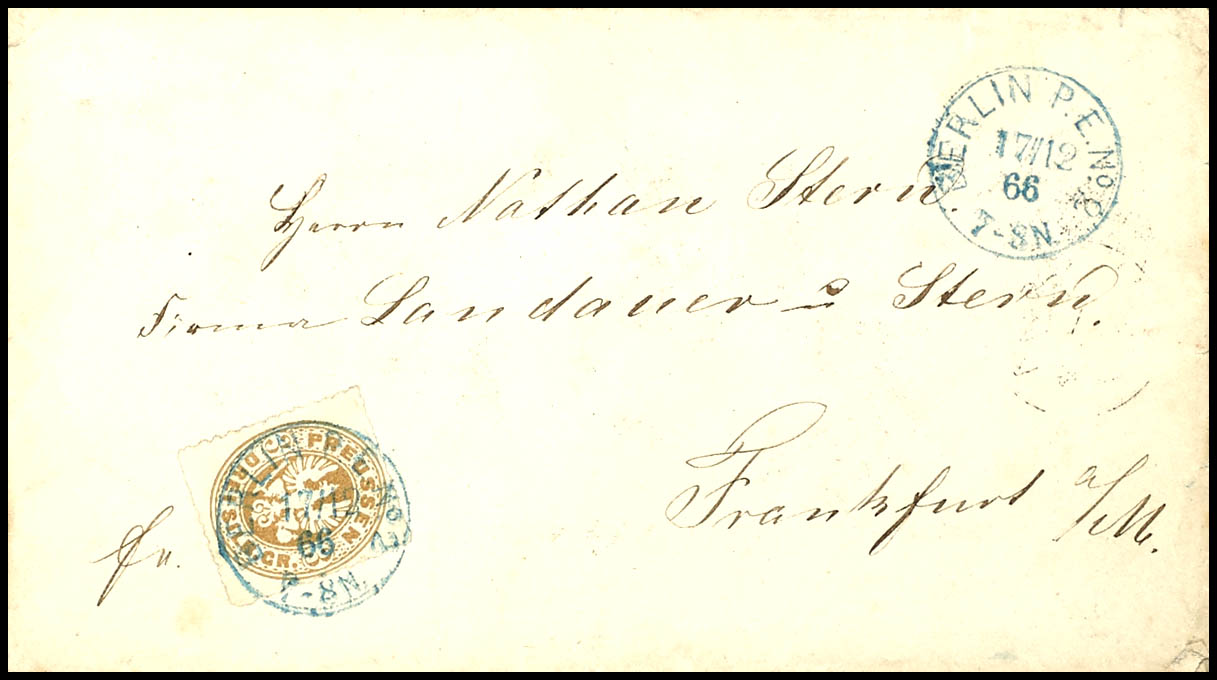 BERLIN P.E. No
17/12
66
7-8N.
Herrn Nathan Stern.
Firma Landauer & Stern.
Frankfurt a/M.
fr.
PREUSSEN
GR.
No
17/12
66
7-8N.